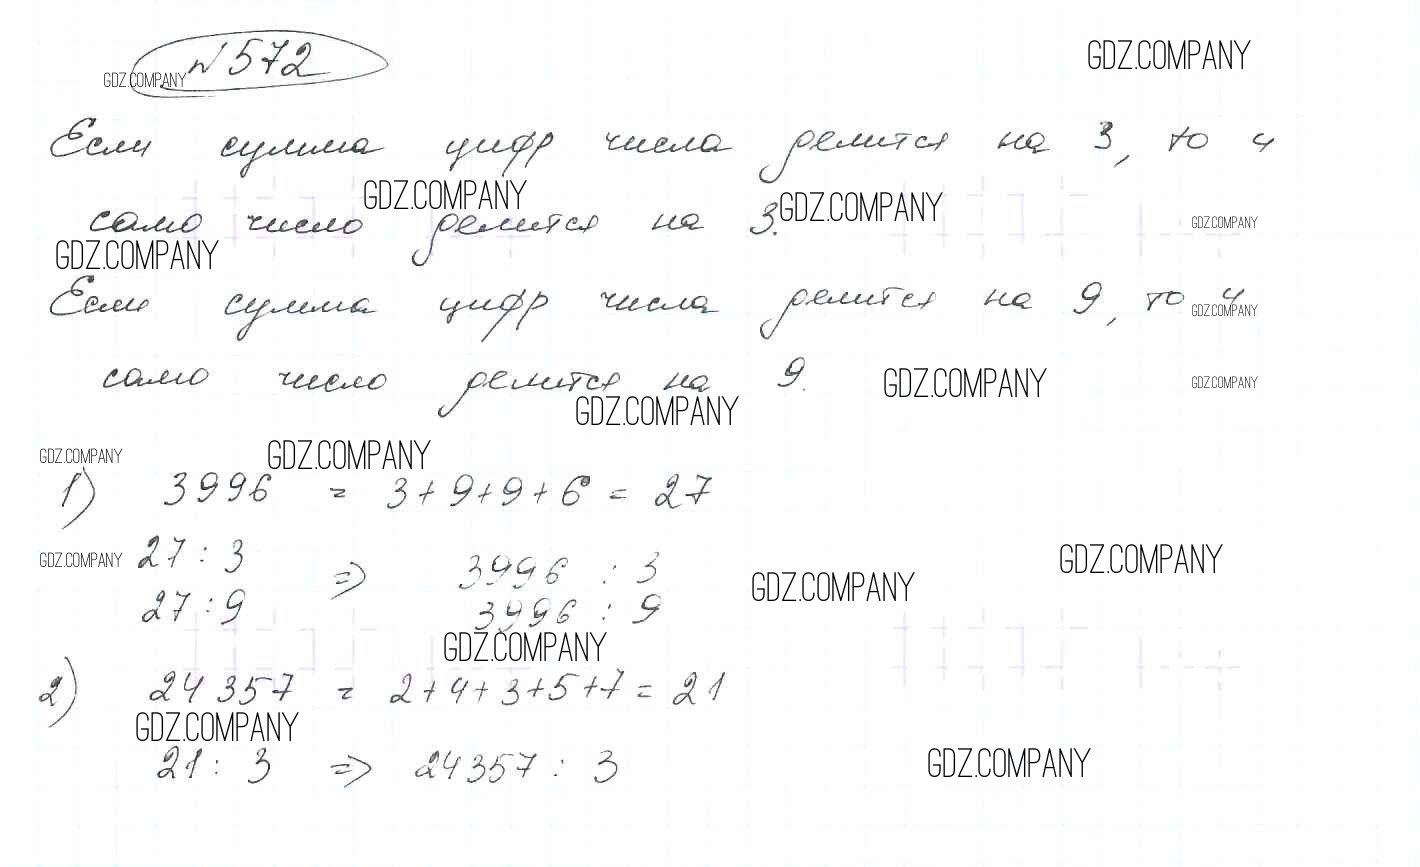 №572
GDZ.COMPANY
GDZ.COMPANY
Если сумма цифр числа делится на 3, то и
GDZ.COMPANY
GDZ.COMPANY
само число делится на 3.
GDZ.COMPANY
GDZ.COMPANY
Если сумма цифр числа делится на 9, то и
GDZ.COMPANY
само число делится на 9.
GDZ.COMPANY
GDZ.COMPANY
GDZ.COMPANY
GDZ.COMPANY
GDZ.COMPANY
1) 3996 = 3+9+9+6 = 27
GDZ.COMPANY
27 : 3 => 3996 : 3
GDZ.COMPANY
GDZ.COMPANY
27 : 9 3996 : 9
GDZ.COMPANY
2) 24357 = 2+4+3+5+7 = 21
GDZ.COMPANY
21 : 3 => 24357 : 3
GDZ.COMPANY